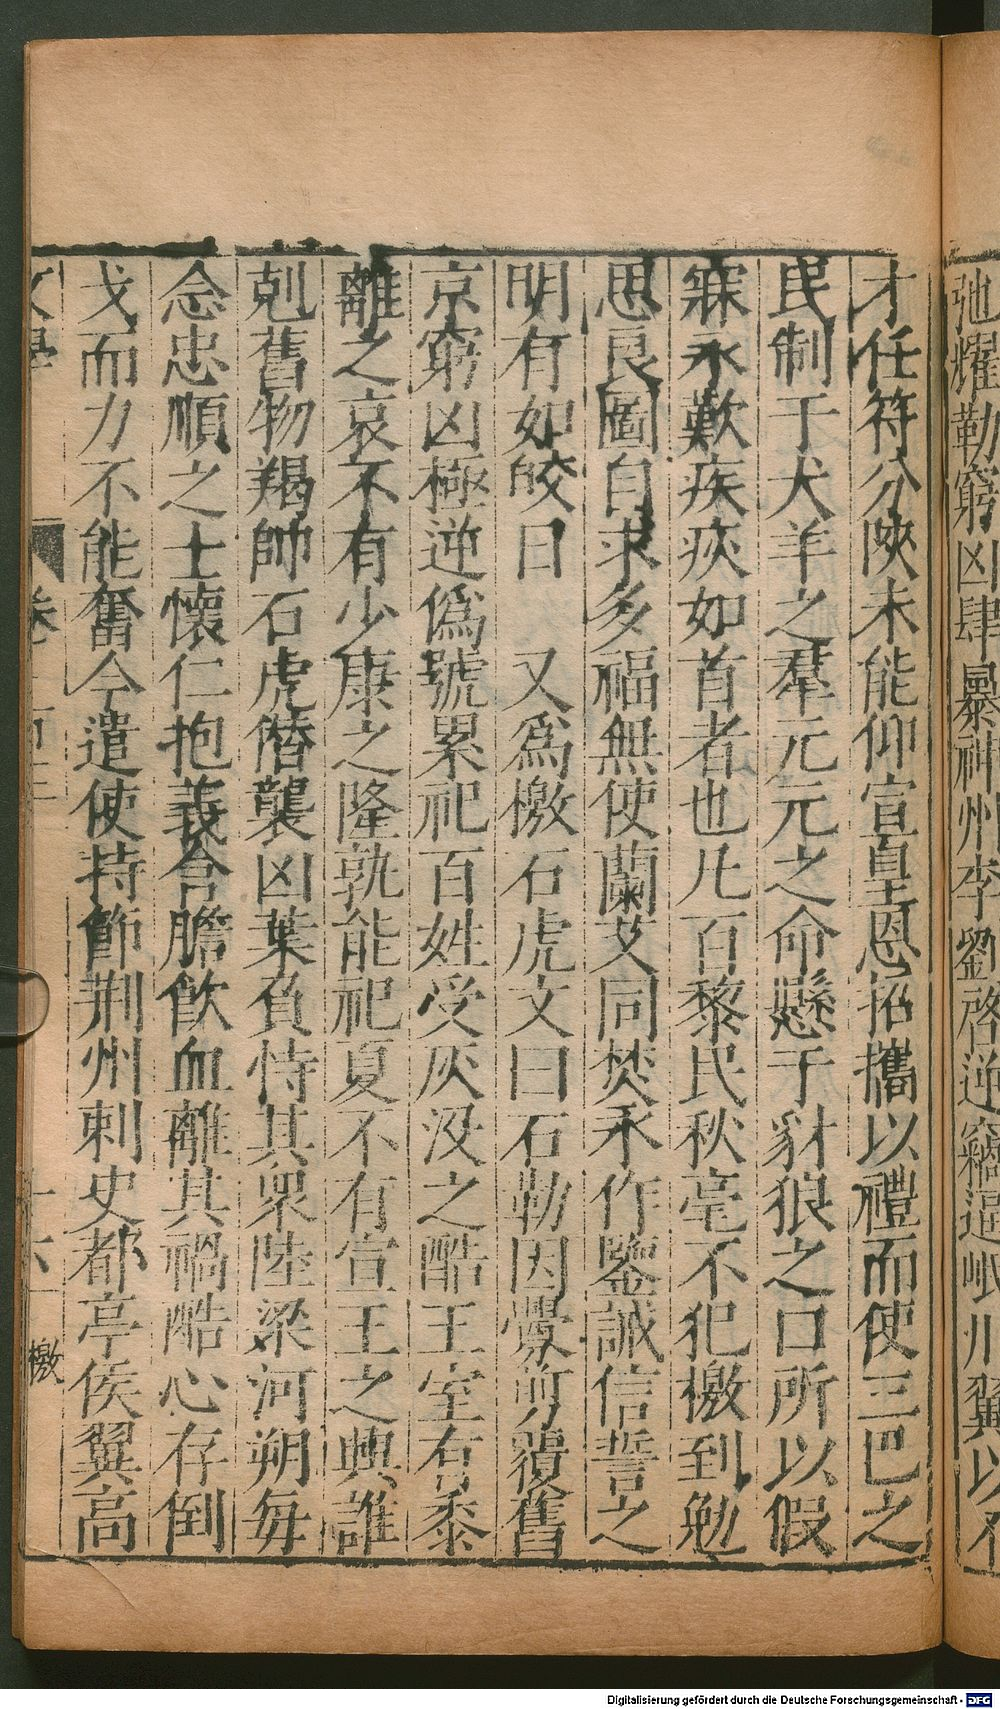 弛耀勒窮凶肆暴神州李劉啓逆竊逼岷川翼以不
才任符分陝未能仰宣皇恩招攜以禮而使三巴之
民制于犬羊之羣元元之命懸于豺狼之口所以假
寐永歎疾疢如首者也凡百黎民秋毫不犯檄到勉
思良圖自求多福無使蘭艾同焚永作鑒誡信誓之
明有如皎日 又爲檄石虎文曰石勒因釁覆舊
京窮凶極逆僞號累祀百姓受灰沒之酷王室有黍
離之哀不有少康之隆孰能祀夏不有宣王之興誰
剋舊物羯帥石虎僭襲凶葉負恃其衆陸梁河朔每
念忠順之士懷仁抱義含膽飲血離其禍酷心存倒
戈而力不能奮今遣使持節荆州刺史都亭侯翼高
文學 卷 十六 檄
Digitalisierung gefördert durch die Deutsche Forschungsgemeinschaft - DFG